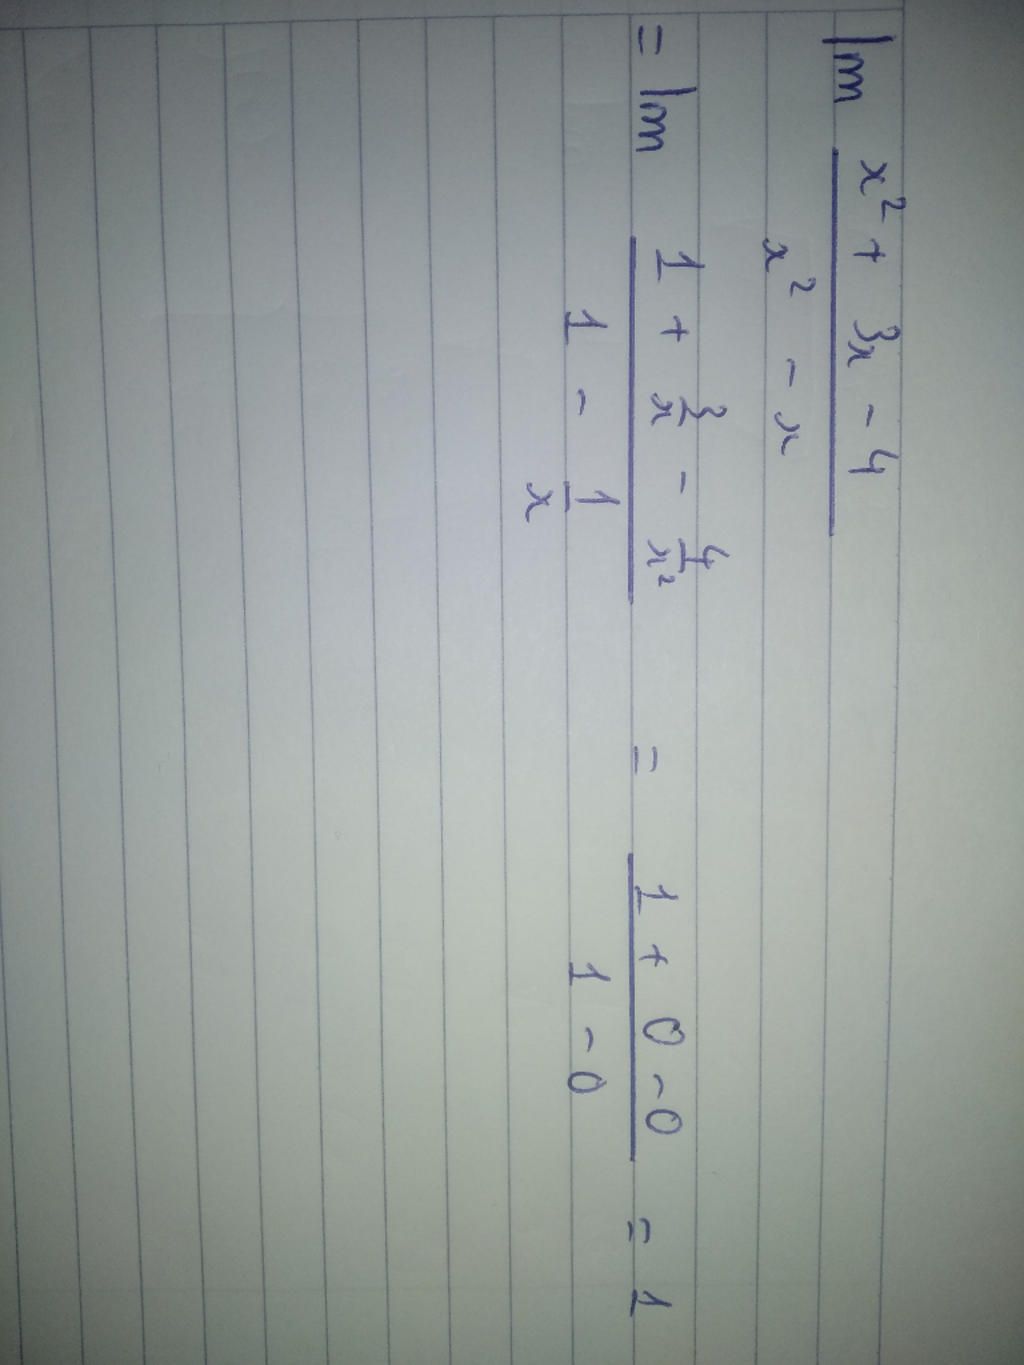 lm x² + 3x - 4 / x² - x
= lm 1 + 3/x - 4/x² / 1 - 1/x = 1 + 0 - 0 / 1 - 0 = 1